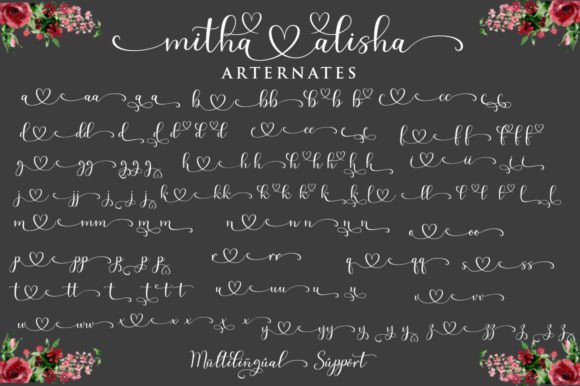 mitha♡alisha
ARTERNATES
a♡ aa a a b♡ bb b b b c♡ cc c c
d♡ dd d d d d d e♡ ee e f♡ ff f f f
g♡ gg g g g h♡ h h h h h h h i♡ ii i i
j♡ jj j j j k♡ kk k k k k k l♡ ll l l l l
m♡ mm m m n♡ n n n n o♡ oo
p♡ pp p p p r♡ rr q♡ qq s♡ ss
t♡ tt t t t t u♡ uu u u v♡ vv
w♡ ww x♡ x x x x y♡ yy y y y z♡ zz z z z
Multilingual Support